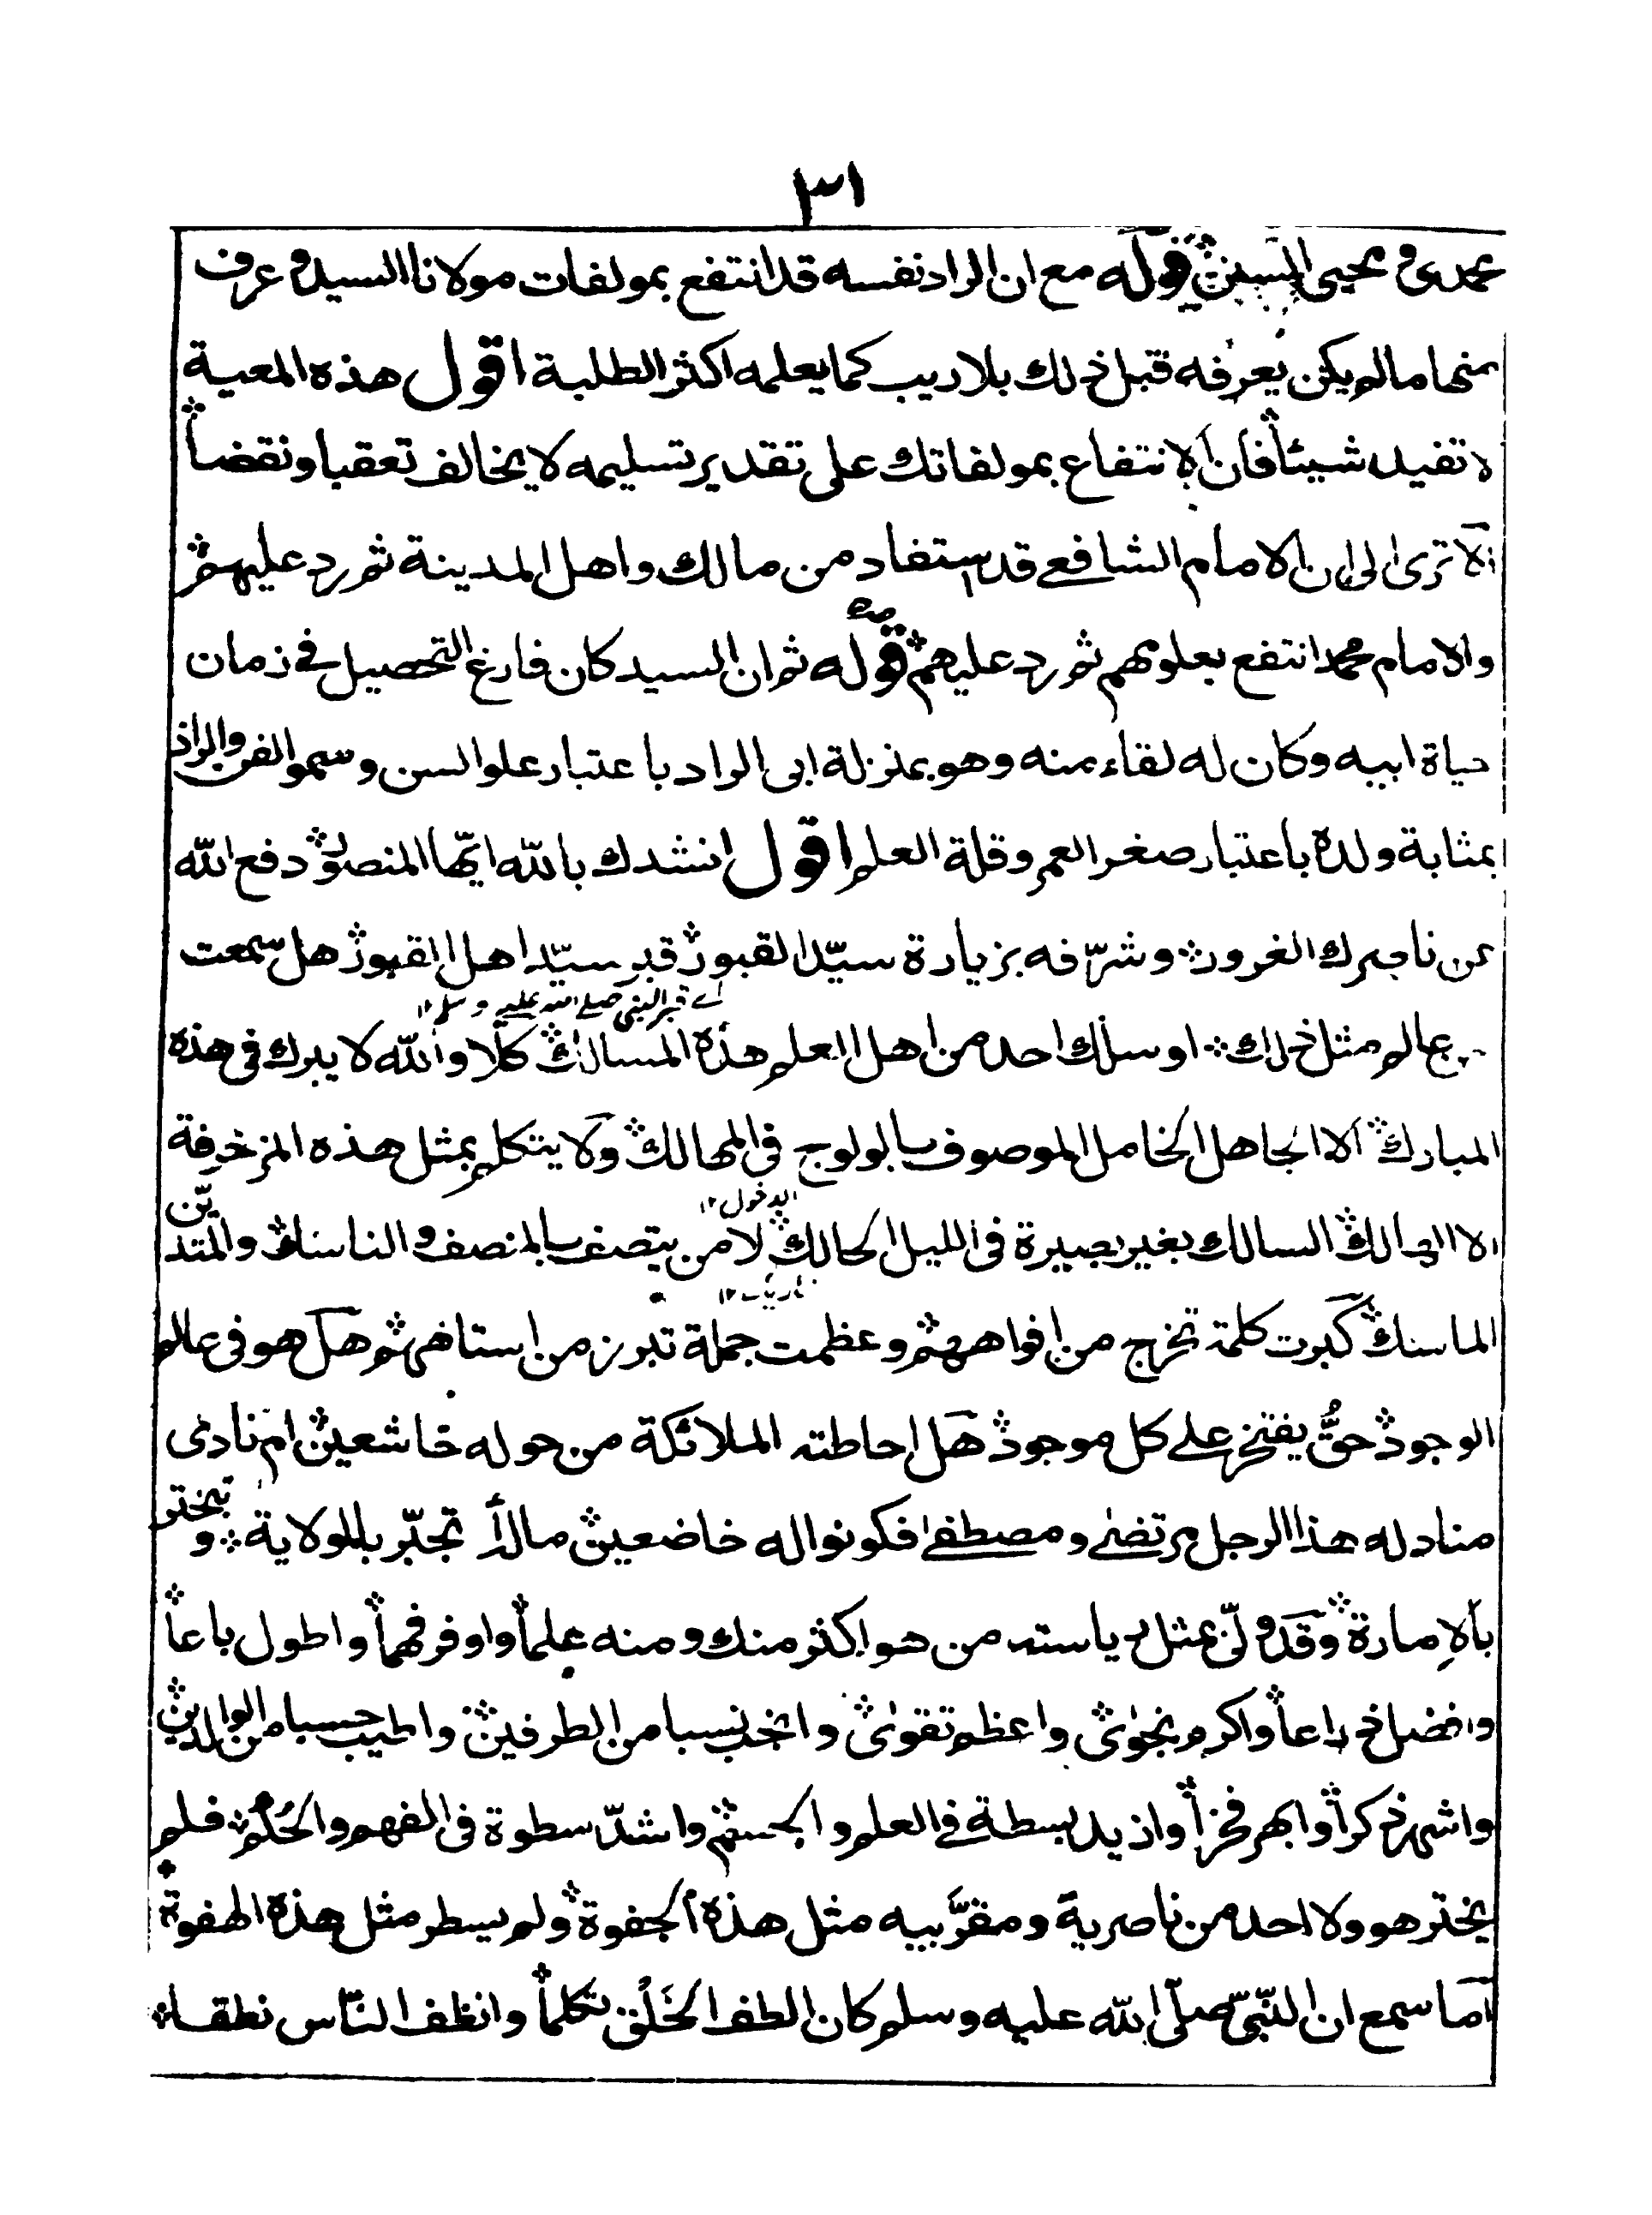 ٣١
محمدى و محيى السنن قوله مع ان الراد نفسه قد انتفع بمولفات مولانا السيد و عرف
منها ما لم يكن يعرفه قبل ذلك بلا ريب كما يعلمه اكثر الطلبة اقول هذه المعية
لا تفيد شيئاً فان الانتفاع بمولفاتك على تقدير تسليمه لا يخالف تعقبا و نقضاً
الا ترى الى ان الامام الشافعي قد استفاد من مالك و اهل المدينة ثم رد عليهم
والامام محمد انتفع بعلومهم ثم رد عليهم قوله ثم ان السيد كان فارغ التحصيل في زمان
حياة ابيه وكان له لقاء منه وهو بمنزلة ابى الراد باعتبار علو السن و سمو الفن والراد
بمثابة ولده باعتبار صغر العمر وقلة العلم اقول انشدك بالله ايها المنصور دفع الله
عن ناصرك الغرور وشرّفه بزيارة سيّد القبور قبر سيّد اهل القبور هل سمعت
اے قبر النبي صلے اللہ عليہ و سلم ١٢
من عالم مثل ذلك او سلك احد من اهل العلم هذه المسالك كلّا والله لا يبرك فى هذه
المبارك الا الجاهل الخامل الموصوف بالولوج فى المهالك ولا يتكلم بمثل هذه المزخرفة
الدخول ١٢
الا الهالك السالك بغير بصيرة فى الليل الحالك لا من يتصف بالمنصف و الناسك والمتديّن
تاريك ١٢
الماسك كبرت كلمة تخرج من افواههم وعظمت جملة تبرز من استاههم هل هو فى عالم
الوجود حقٌّ يفتخر على كل موجود هل احاطته الملائكة من حوله خاشعين ام نادى
مناد له هذا الرجل مرتضى و مصطفى فكونوا له خاضعين ما لك تجبّر بالولاية و تبختر
بالامارة وقد ولى بمثل رياسته من هو اكثر منك ومنه علماً واوفر فهماً واطول باعاً
وافضل ذراعاً واكرم نجوى واعظم تقوى وانجب نسبا من الطرفين واطيب حسبا من الوالدين
واشهر ذكراً وابهر فخراً وازيد بسطة في العلم والجسم واشدّ سطوة فى الفهم والحُكم فلم
يختر هو ولا احد من ناصريه ومقرّبيه مثل هذه الجفوة ولم يسطر مثل هذه الهفوة
اما سمع ان النّبىّ صلّى الله عليه وسلم كان الطف الخَلْق تكلماً وانظف النّاس نطقا